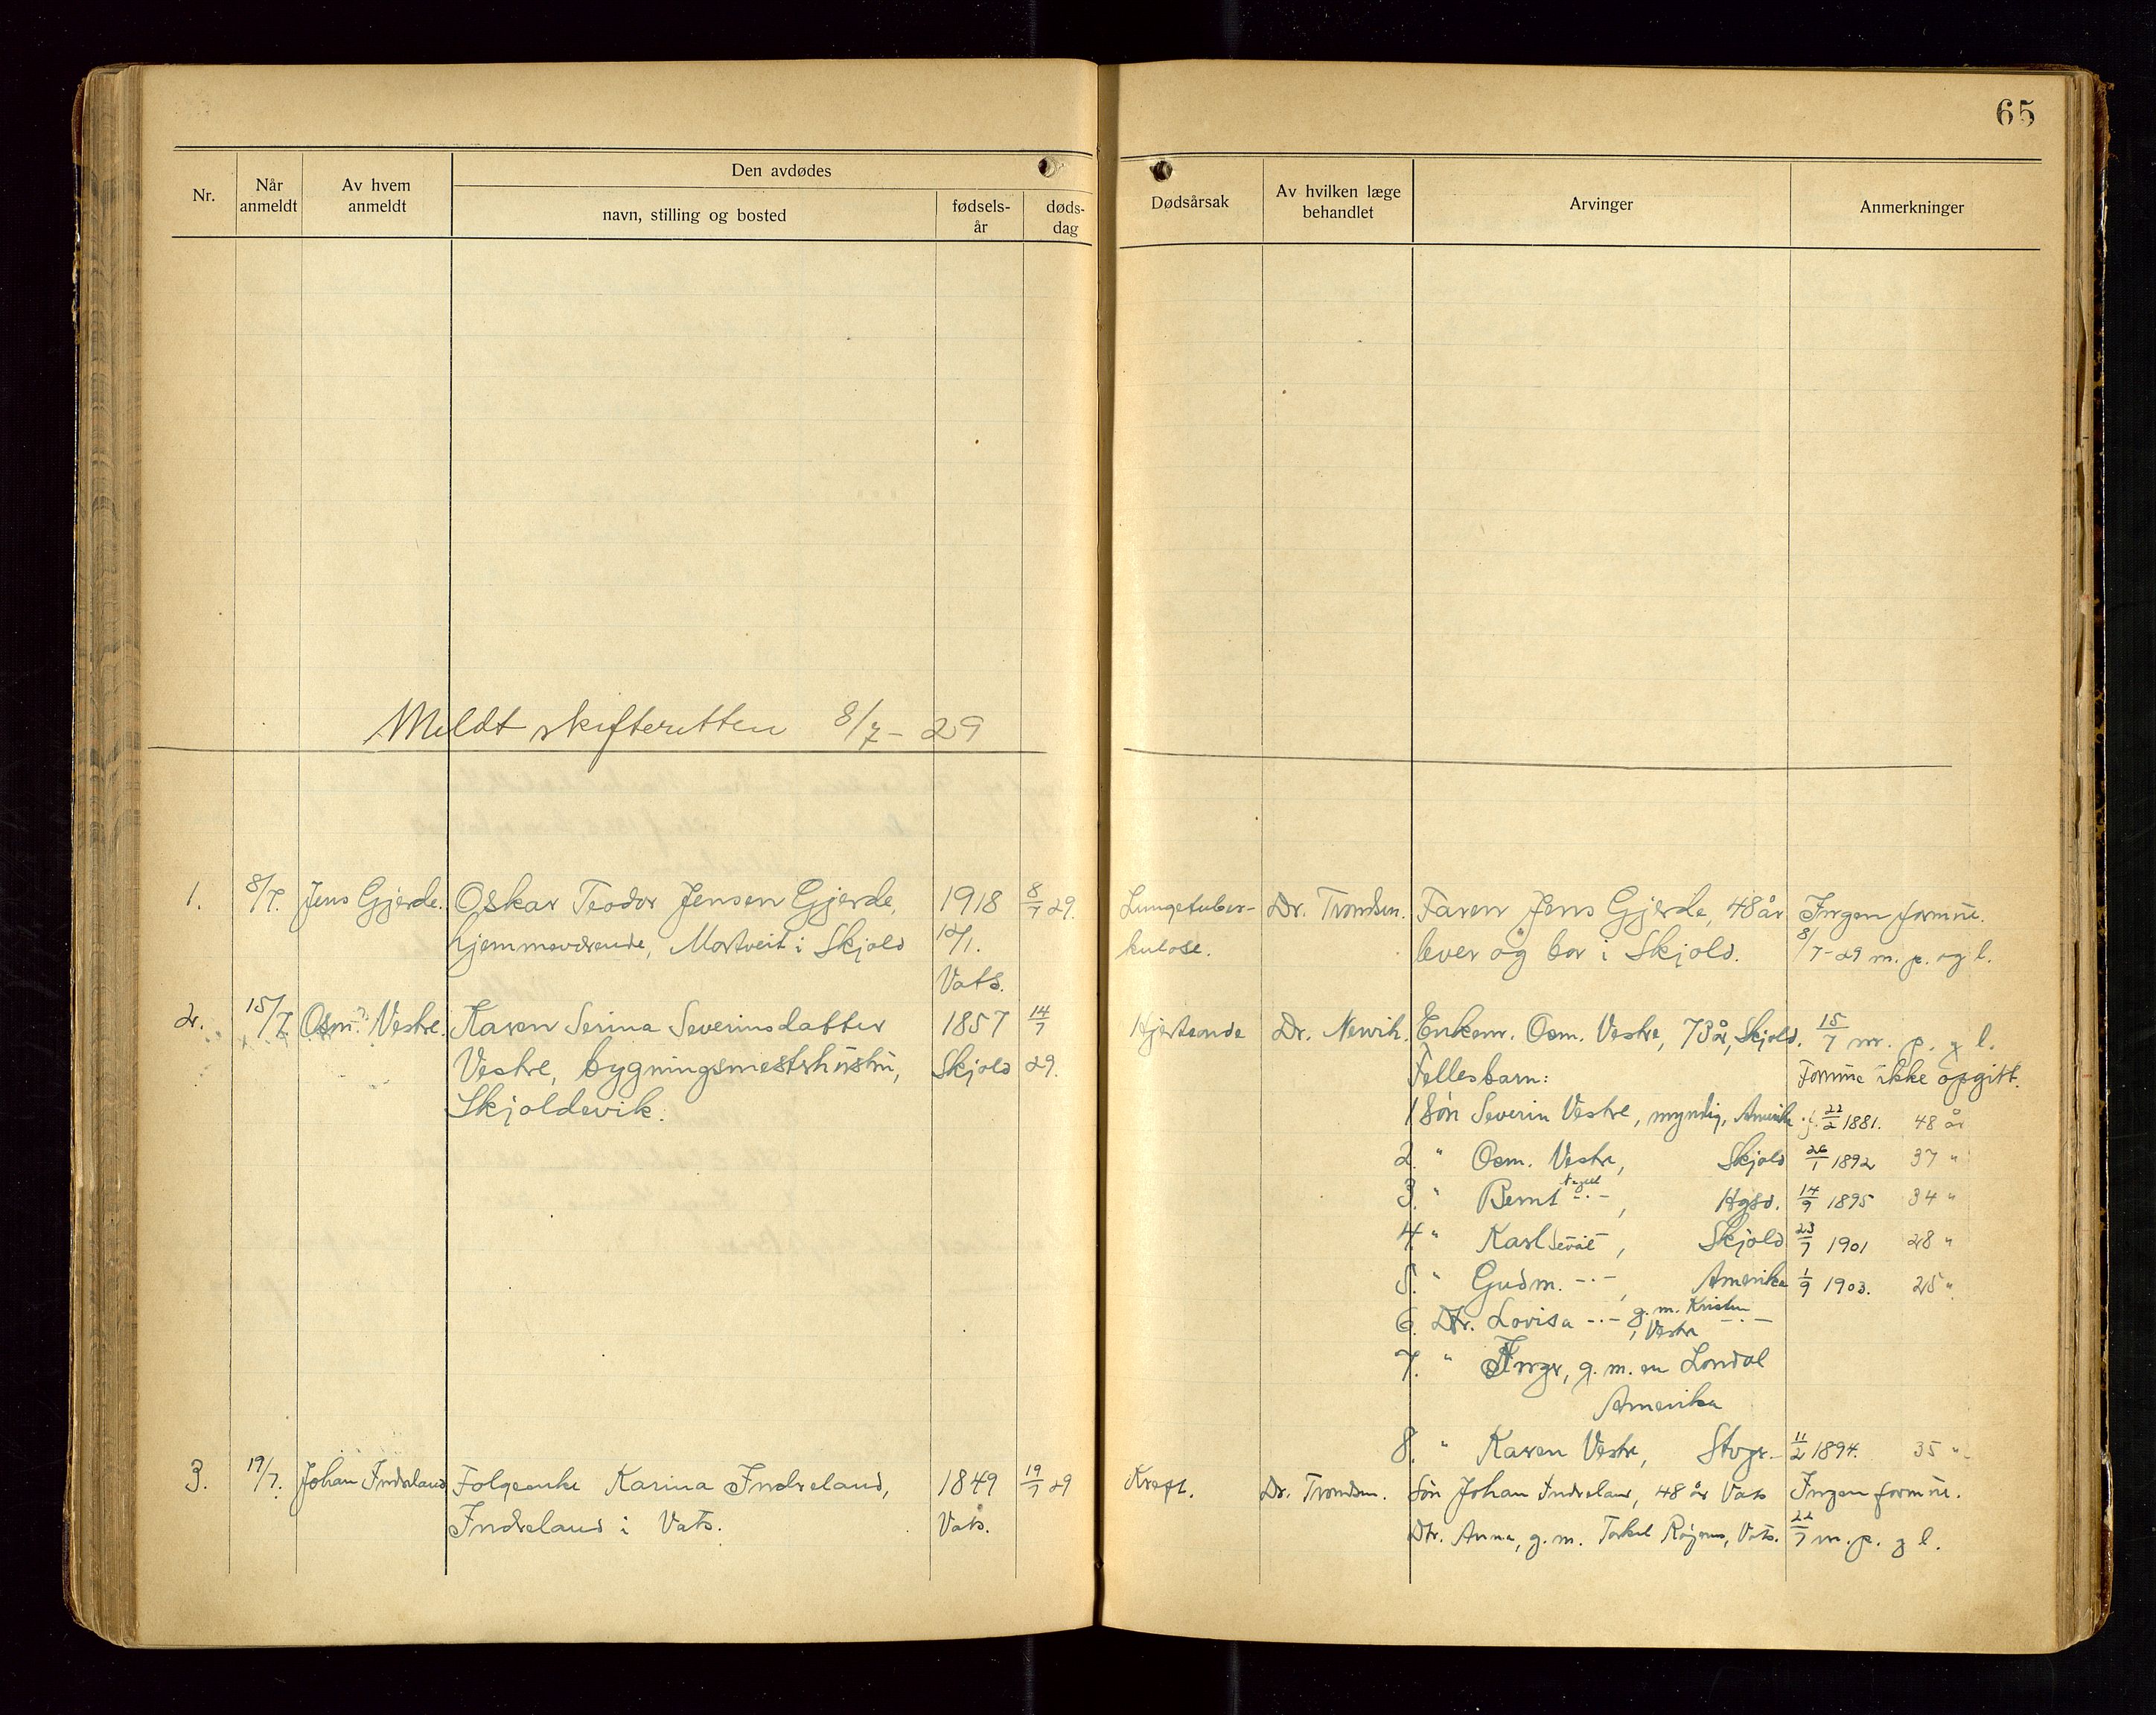 65
Nr.
Når anmeldt
Av hvem anmeldt
Den avdødes
navn, stilling og bosted
fødsels- år
døds- dag
Dødsårsak
Av hvilken læge behandlet
Arvinger
Anmerkninger
Meldt skifteretten 8/7 - 29
1. 8/7. Jens Gjerde. Oskar Teodor Jensen Gjerde, 1918 8/7 29. Lungetuber- Dr. Trondsen. Faren Jens Gjerde, 48 år Ingen formue.
hjemmeværende, Mortveit i Skjold 12/1. kulose. lever og bor i Skjold. 8/7-29 m. p. og l.
Vats.
2. 15/7. Osm. Vestre. Karen Serina Severinsdatter 1857 14/7 Hjertende Dr. Enkem. Osm. Vestre, 73 år, Skjold. 15/7 m. p. g l.
Vestre, bygningsmesterhustru, Skjold 29. Fellesbarn: Formue ikke opgitt.
Skjoldevik. 1 Søn Severin Vestre, myndig, Amerika f. 22/2 1881. 48 år
2. " Osm. Vestre, Skjold 26/1 1892 37 "
3. " Bernt -"-, Hgsd. 14/9 1895 34 "
4. " Karl -"-, Skjold 23/7 1901 28 "
5. " Gudm. -"-, Amerika 1/9 1903. 25 "
6. Dtr. Lovisa -"-, g. m. Kristen Vestre -"-
7. " Inger, g. m. en Londal
Amerika
8. " Karen Vestre, Stvgr. 11/2 1894. 35 "
3. 19/7. Johan Indreland Folgeenke Karina Indreland, 1849 19/7 29 Kreft. Dr. Trondsen. Søn Johan Indreland, 48 år Vats Ingen formue.
Indreland i Vats. Vats. Dtr. Anna, g. m. Torkel Vats. 22/7 m. p. g l.